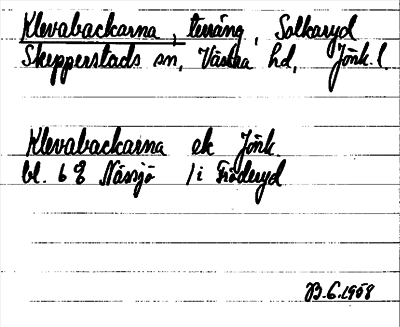 Klevabackarna, terräng, Solkaryd
Skepperstads sn, Västra hd, Jönk. l.
Klevabackarna ek Jönk.
bl. 6 E Nässjö / i Fröderyd
B. G. 1958